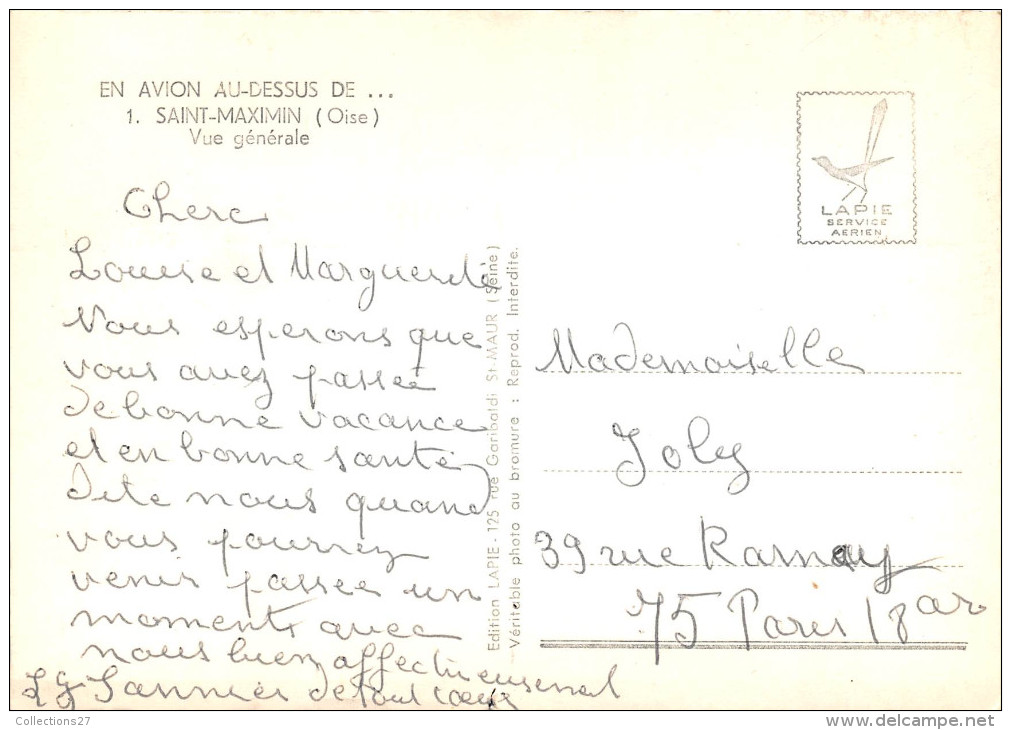 EN AVION AU-DESSUS DE ...
1. SAINT-MAXIMIN (Oise)
Vue générale
LAPIE
SERVICE
AERIEN
Cherc
Louise et Marguerite
Nous esperons que
vous avez passée
de bonne vacance
et en bonne santé
dite nous quand
vous pourrez
venir passée un
moment avec
nous bien affectueusement
de tout cœur
Edition LAPIE - 125 rue Garibaldi St-MAUR (Seine)
Véritable photo au bromure : Reprod. Interdite.
Mademoiselle
Joly
39 rue Ramey
75 Paris 18 ar
Collections27
delcampe.net